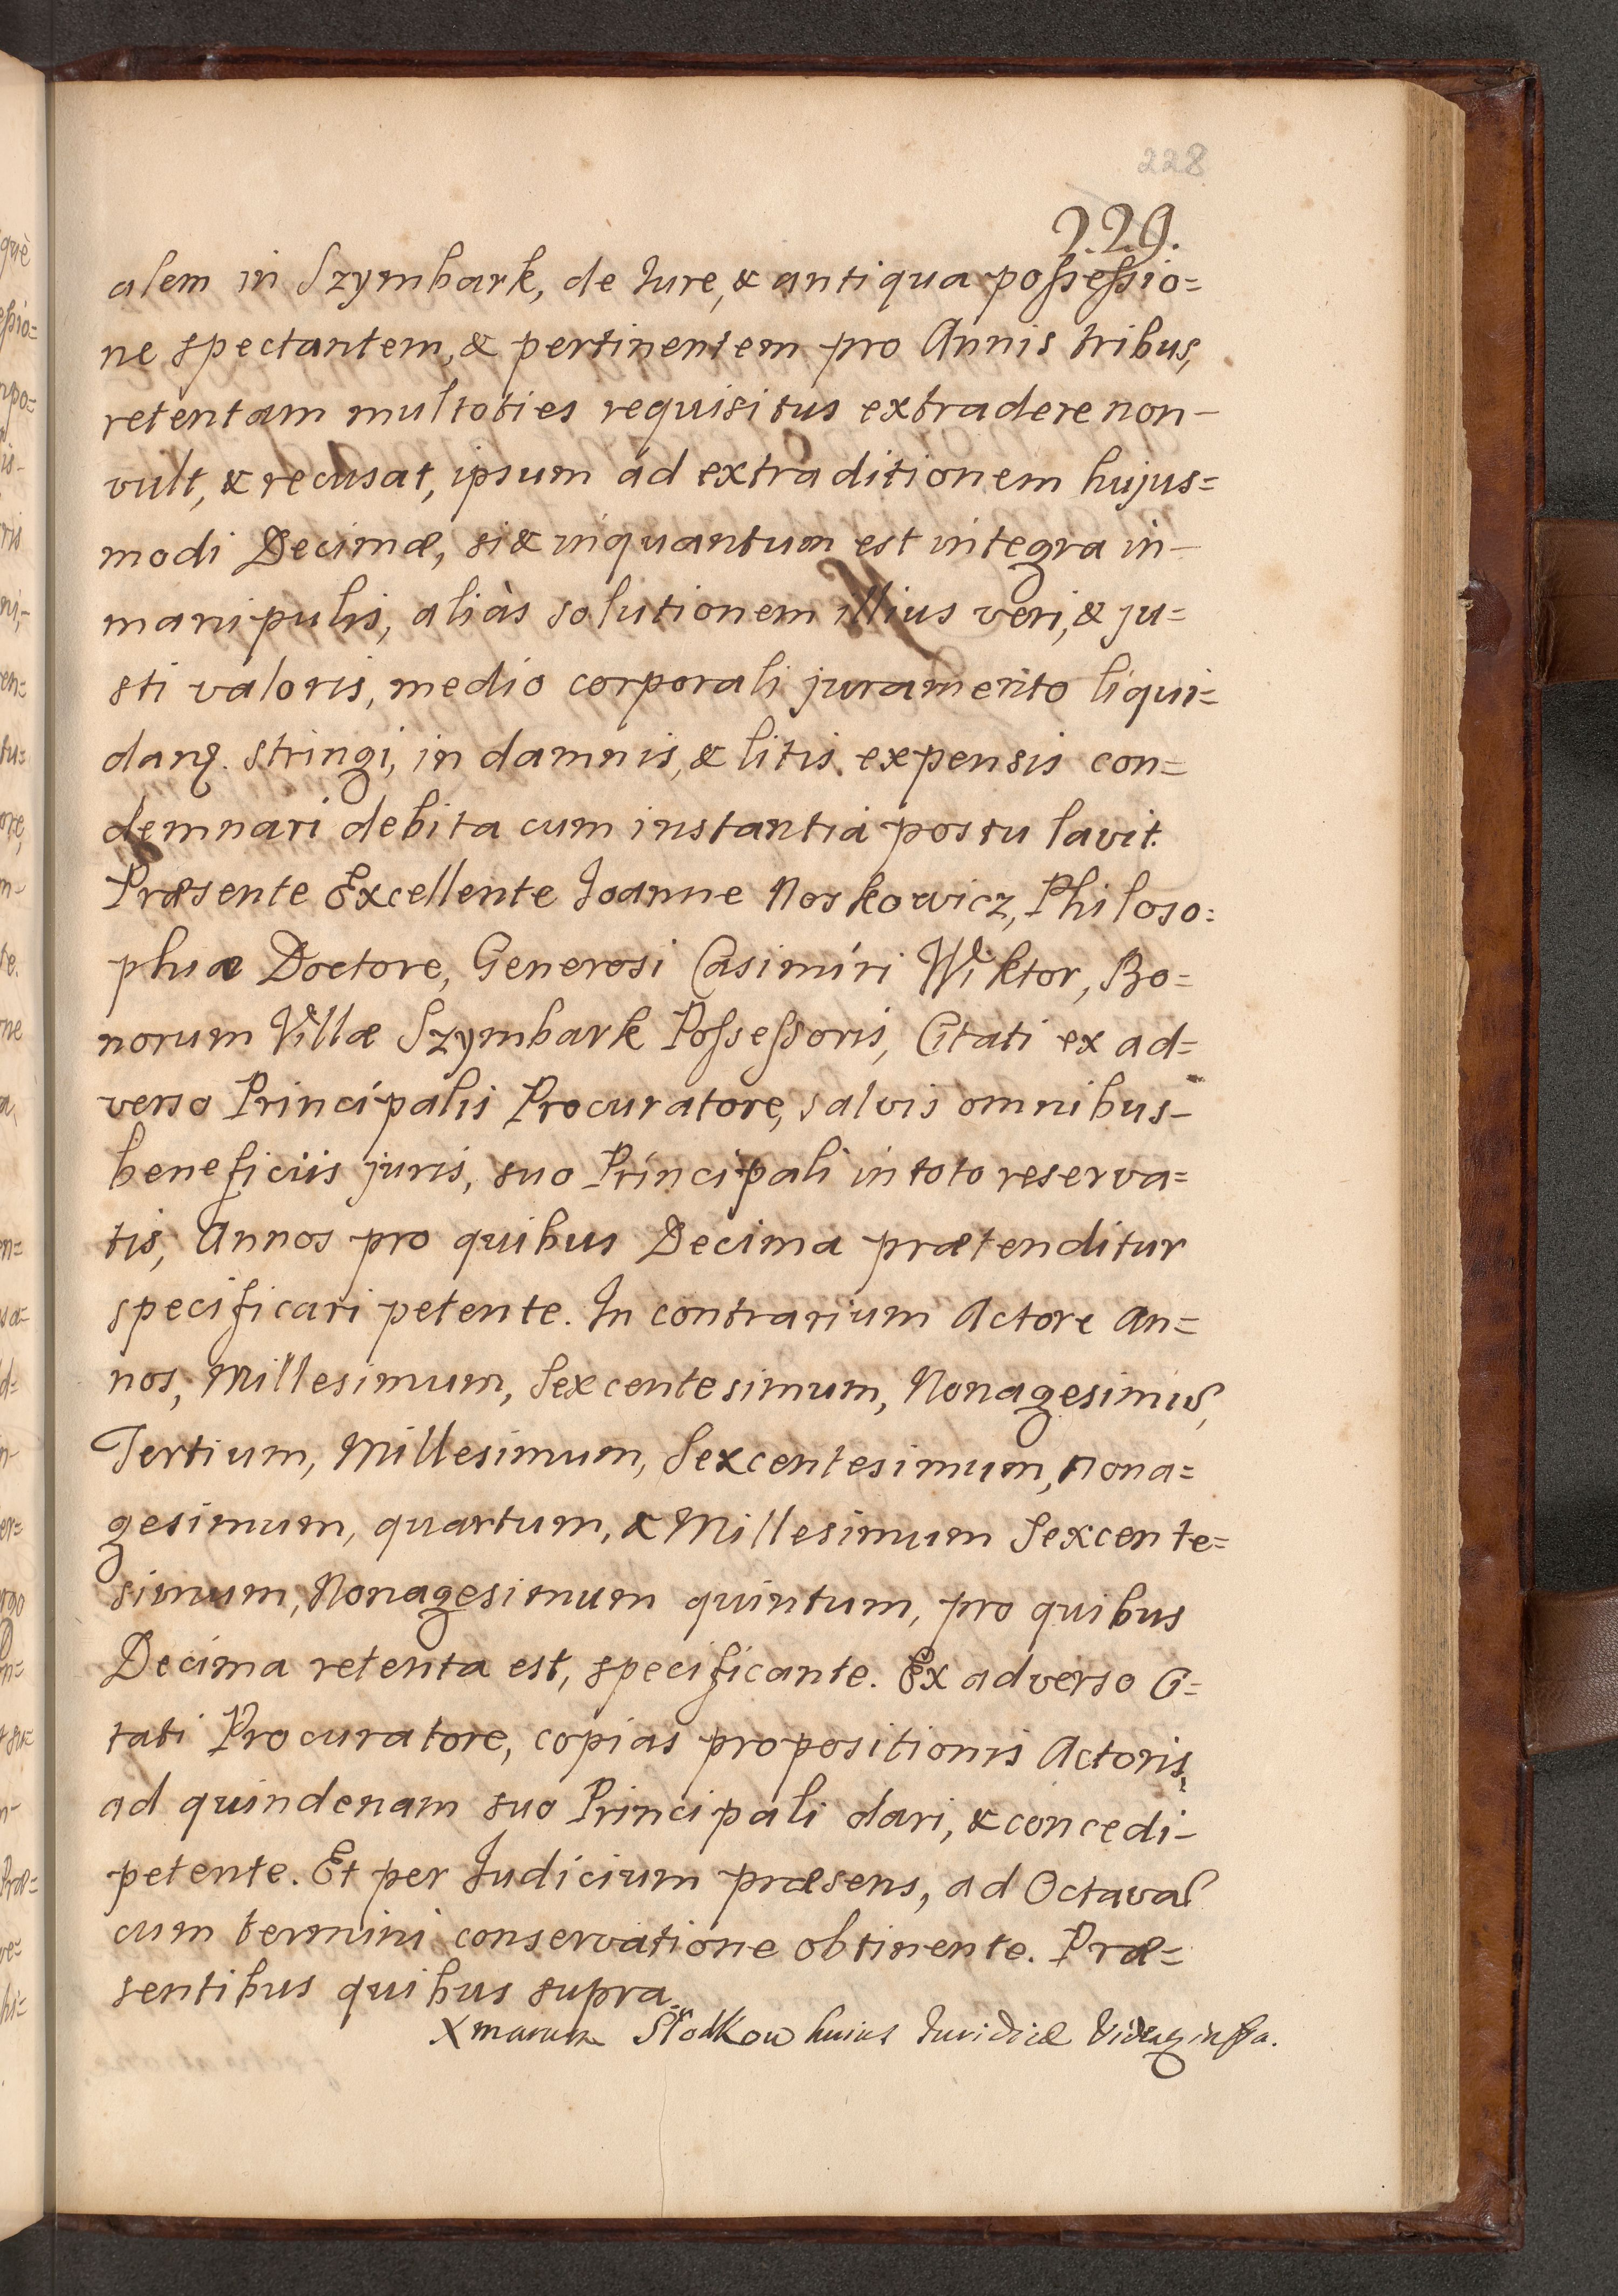 228
229.
alem in Szymbark, de Jure, & antiqua possessio=
ne spectantem, & pertinentem pro Annis tribus,
retentam multoties requisitus extradere non-
vult, & recusat, ipsum ad extraditionem hujus=
modi Decimæ, si & inquantum est integra in-
manipulis, aliàs solutionem illius veri, & ju=
sti valoris, medio corporali juramento liqui=
danq. stringi, in damnis, & litis expensis con=
demnari debita cum instantia postulavit.
Præsente Excellente Joanne Noskowicz, Philoso=
phiæ Doctore, Generosi Casimiri Wiktor, Bo=
norum Villæ Szymbark Possessoris, Citati ex ad=
verso Principalis Procuratore, salvis omnibus-
beneficiis juris, suo Principali in toto reserva=
tis, Annos pro quibus Decima prætenditur
specificari petente. In contrarium Actore An=
nos, Millesimum, Sexcentesimum, Nonagesimū,
Tertium, Millesimum, Sexcentesimum, Nona=
gesimum, quartum, & Millesimum Sexcente=
simum, Nonagesimum quintum, pro quibus
Decima retenta est, specificante. Ex adverso Ci=
tati Procuratore, copias propositionis Actoris,
ad quindenam suo Principali dari, & concedi-
petente. Et per Judicium præsens, ad Octavas
cum termini conservatione obtinente. Præ=
sentibus quibus supra.
huius Juridicæ infra.